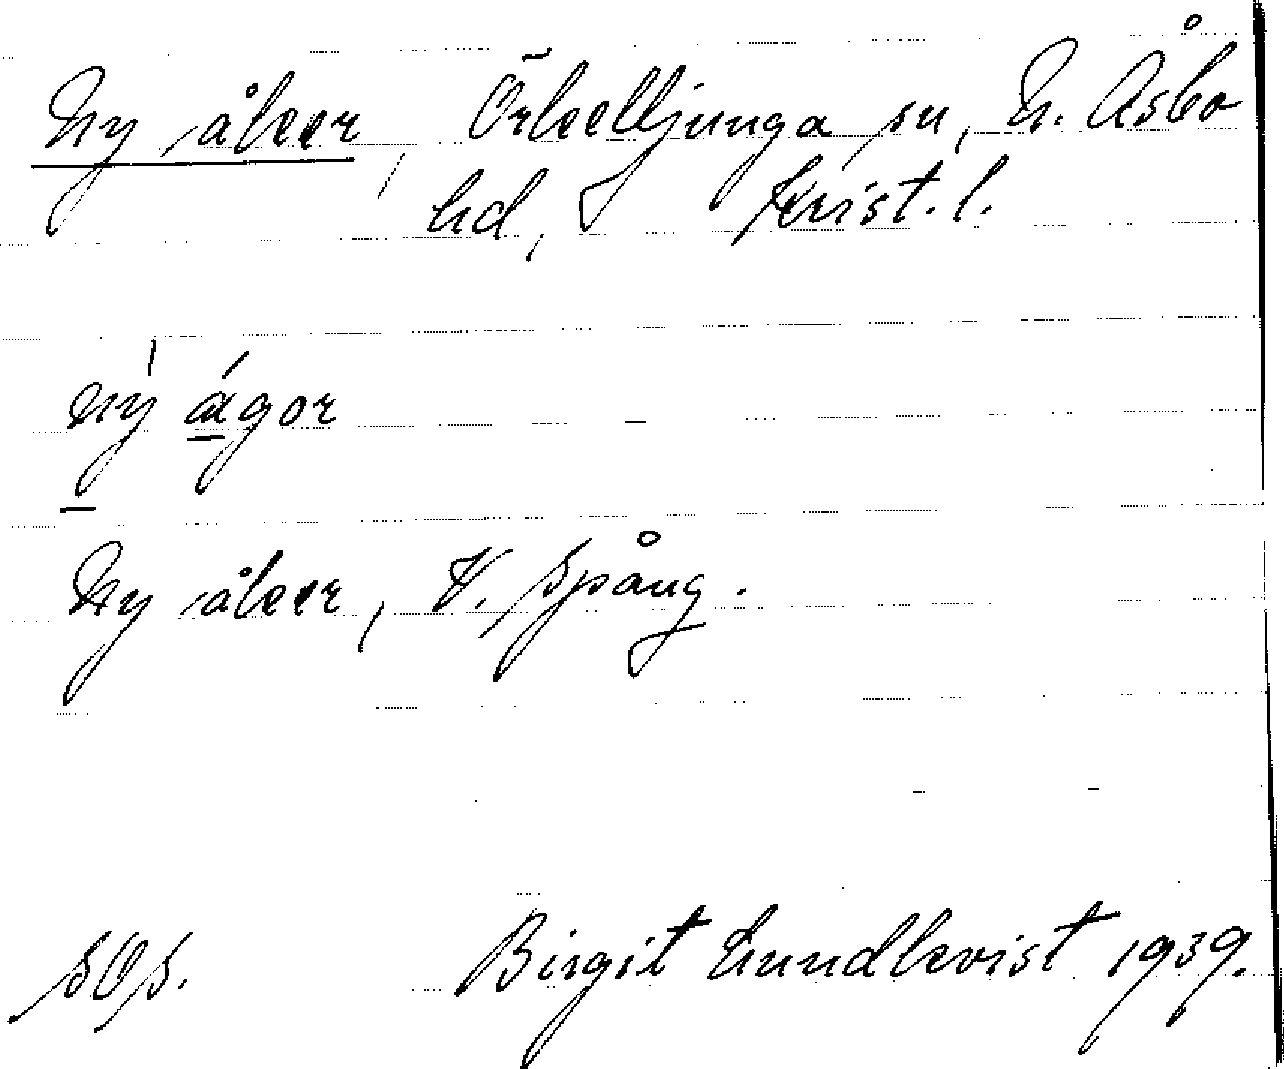 Ny åker, Örkelljunga sn, N. Åsbo
hd, Krist. l.
ny ágor
Ny åker, V. Spång.
Birgit Lundkvist 1939.